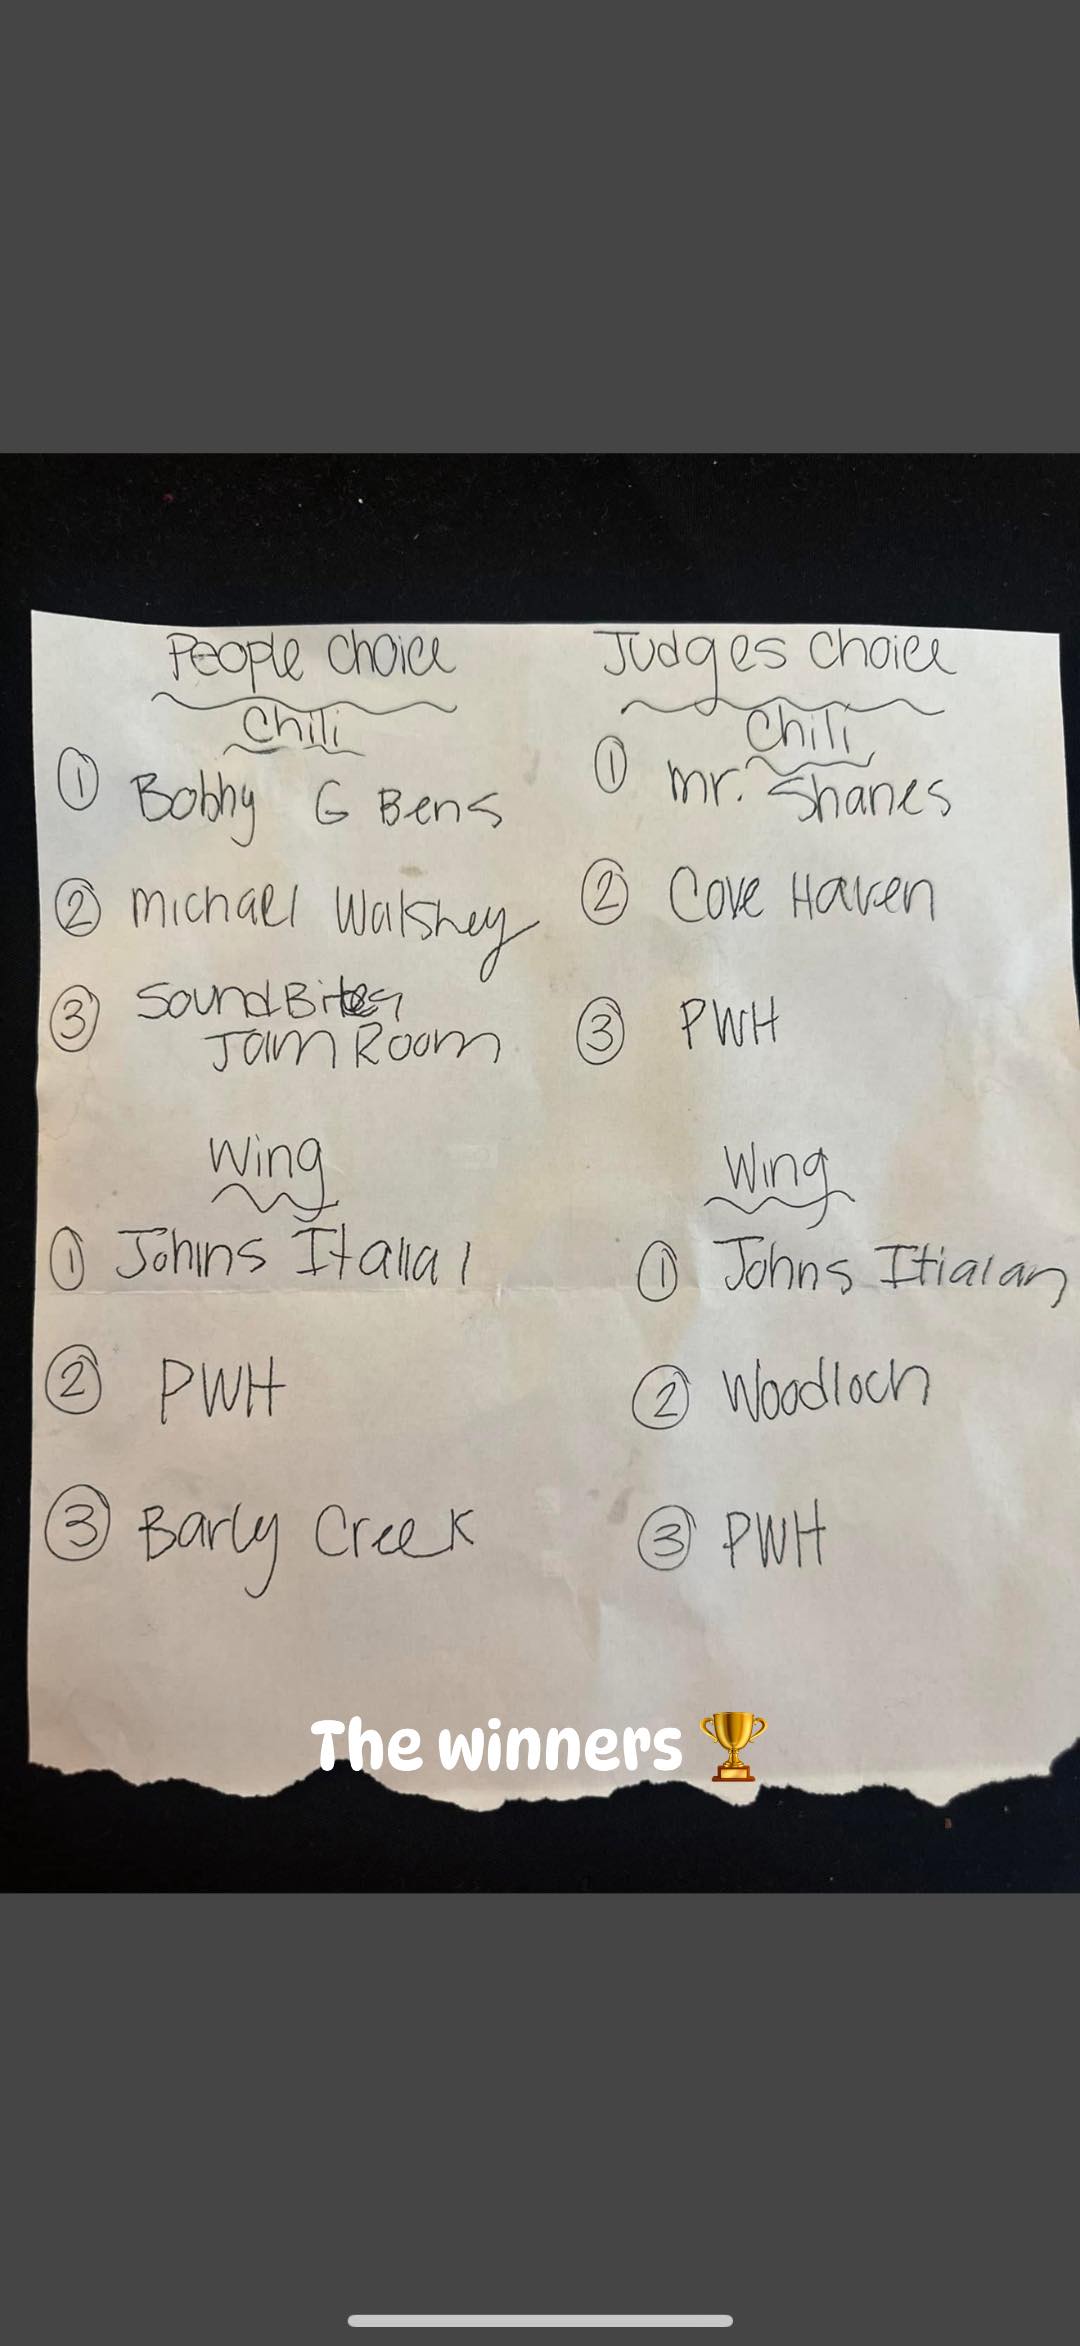 People Choice
Chili
① Bobby G Bens
② Michael Walshey
③ SoundBites
Jam Room
Wing
① Johns Italial
② PWH
③ Barly Creek
Judges Choice
Chili
① mr. Shanes
② Cove Haven
③ PWH
Wing
① Johns Itialan
② Woodloch
③ PWH
The winners 🏆